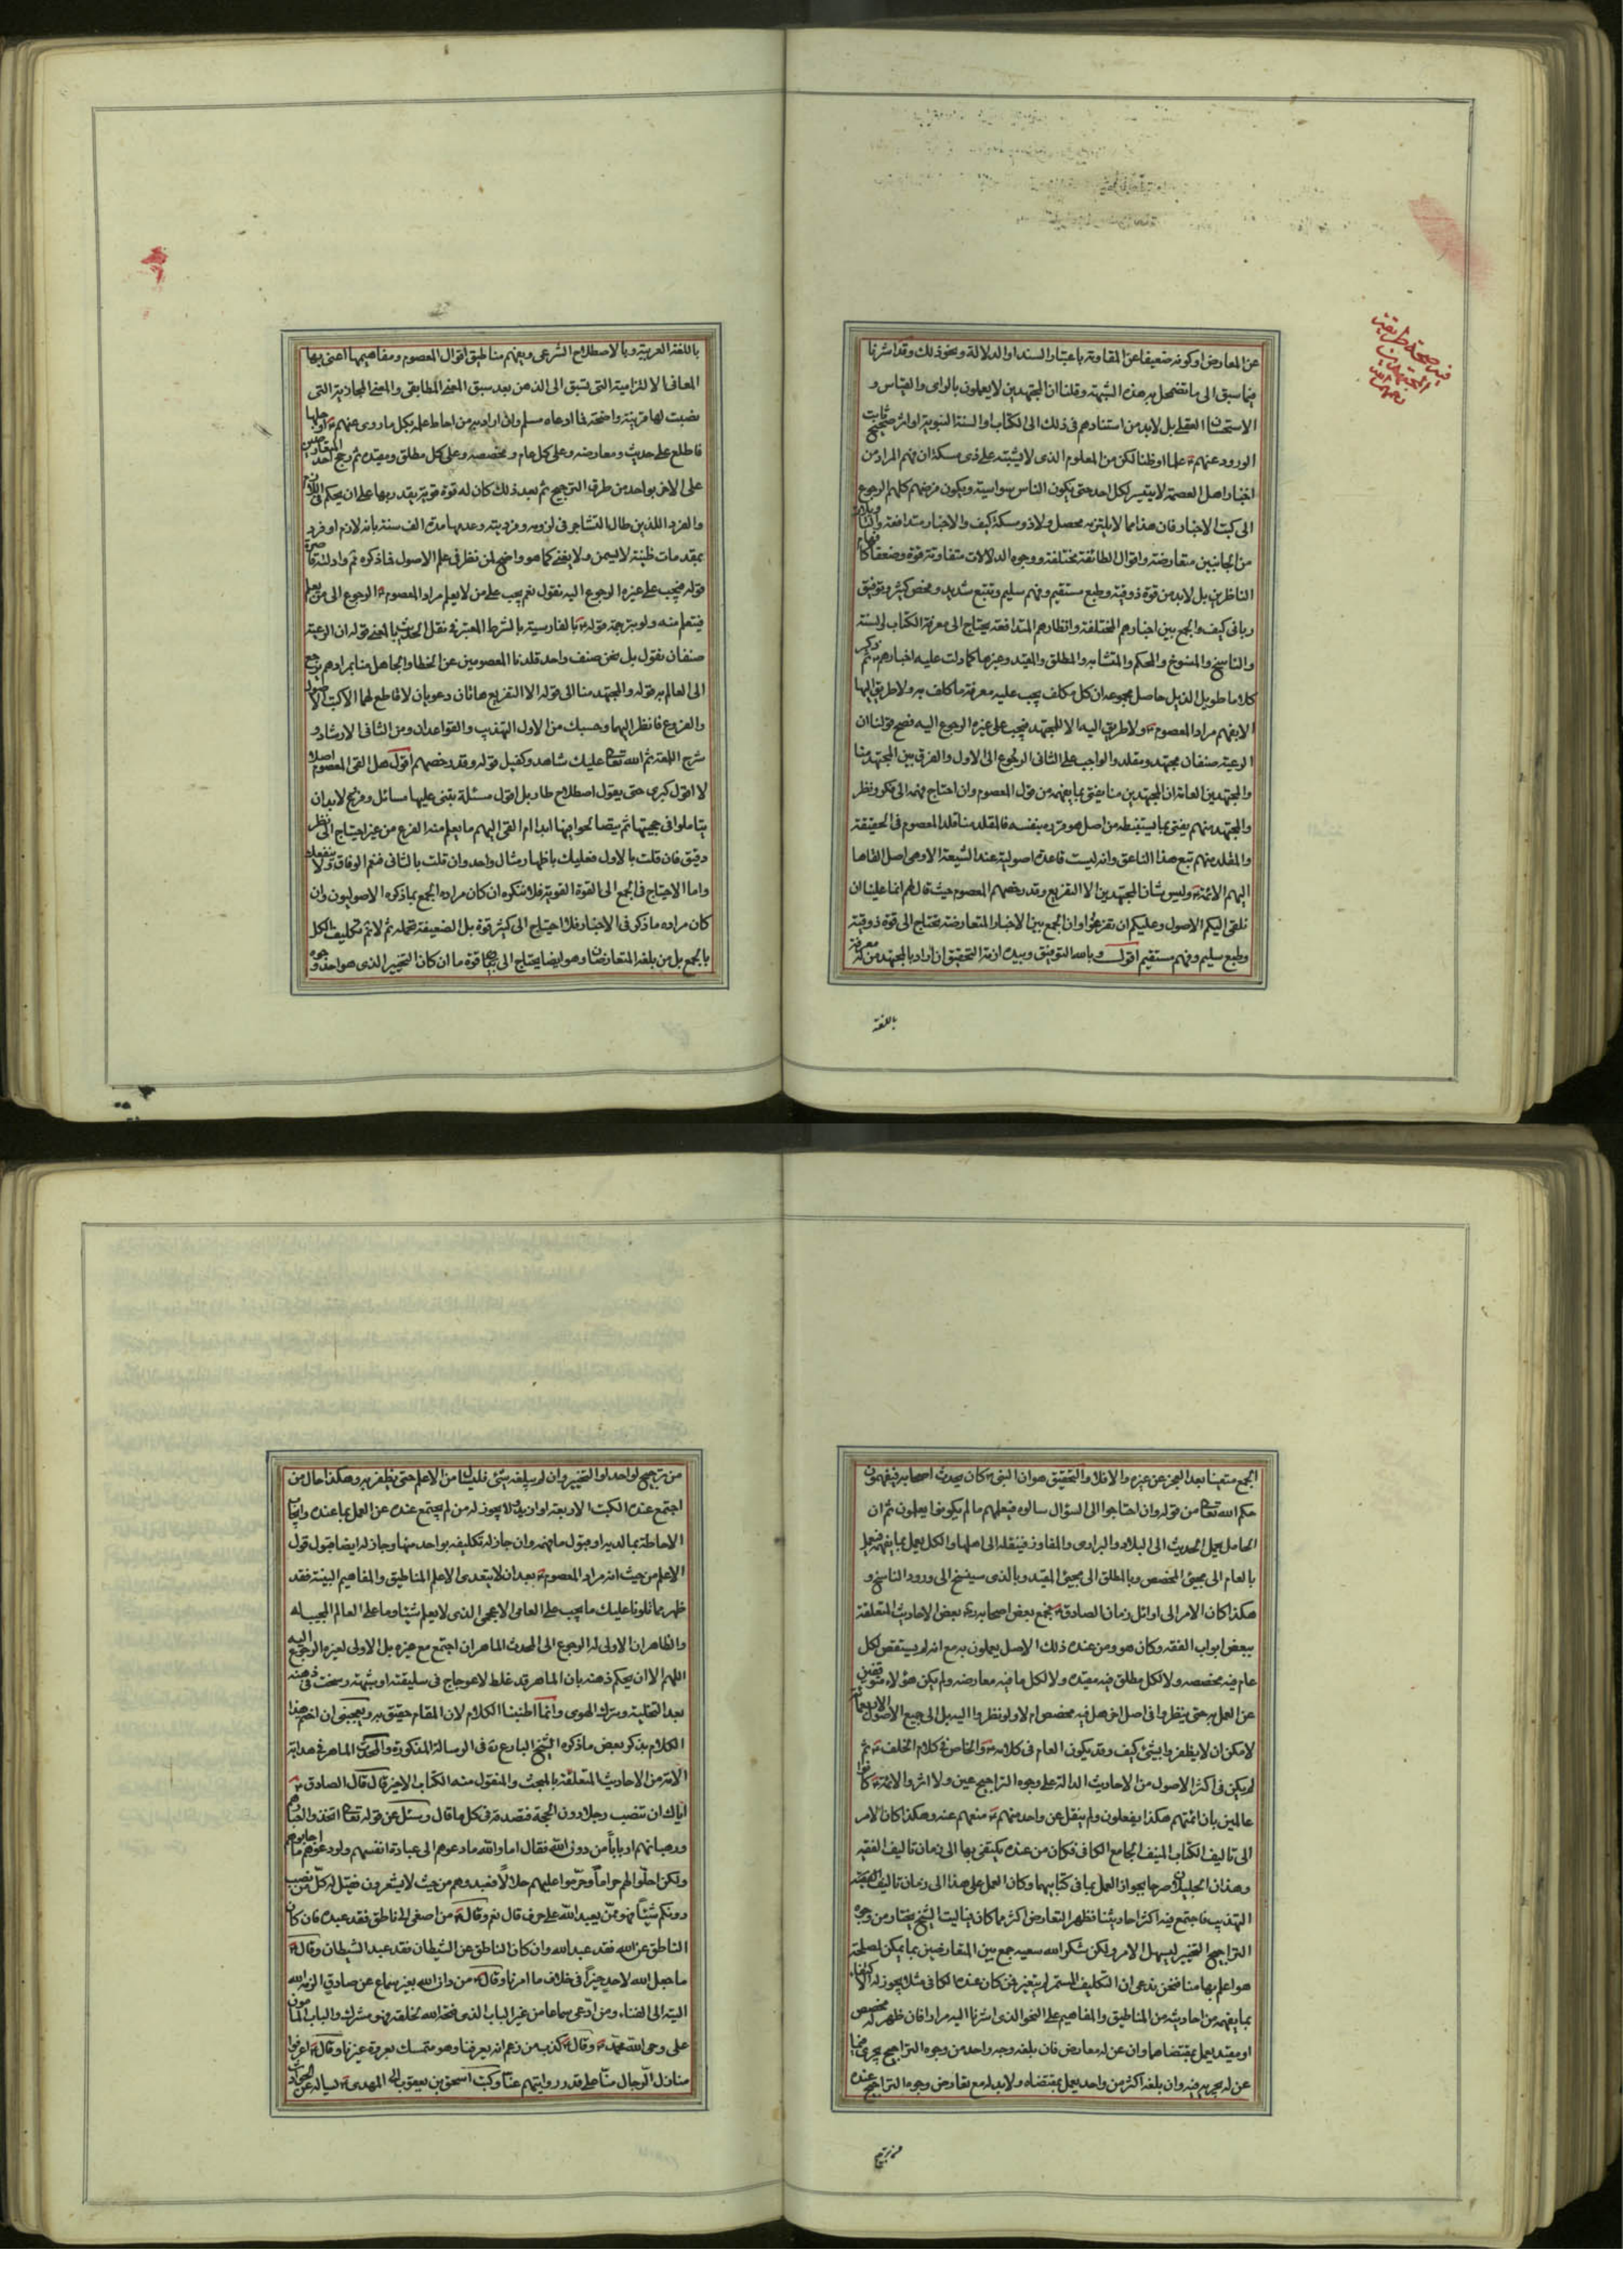 عن المعارض او كونه ضعيفا عن المقاومة باعتبار السند او الدلالة ونحو ذلك وقد اشرنا
فيما سبق الى ما تضمحل به هذه الشبهة وقلنا ان المجتهدين لا يعملون بالراى والقياس و
الاستحسان العقلى بل لا بد من استنادهم فى ذلك الى الكتاب او السنة النبوية او اثر صحيح ثابت
الورود عنهم علما او ظنا لكن من المعلوم الذى لا يشتبه على ذى مسكة ان فهم المراد من
اخبار اهل العصمة لا يتيسر لكل احد حتى يكون الناس سواسية ويكون فرضهم كلهم الرجوع
الى كتب الاخبار فان هذا مما لا يلتزمه محصل ولا ذو مسكة كيف والاخبار متدافعة
من الجانبين متعارضة واقوال الطائفة مختلفة ووجوه الدلالات متفاوتة قوة وضعفا
الناظرين بل لا بد من قوة ذوقية وطبع مستقيم وفهم سليم وتتبع شديد وفحص كثير وتوفيق
ربانى كيف والجمع بين اخبارهم المختلفة وانظارهم المتدافعة يحتاج الى معرفة الكتاب والسنة
والناسخ والمنسوخ والمحكم والمتشابه والمطلق والمقيد وغيرها كما دلت عليه اخبارهم ثم ذكر
كلاما طويل الذيل حاصل مجموعه ان كل مكلف يجب عليه معرفة ما كلف به ولا طريق اليها
الا بفهم مراد المعصوم ولا طريق اليه الا للمجتهد فيجب على غيره الرجوع اليه فصح قولنا ان
الرعية صنفان مجتهد ومقلد والواجب على الثانى الرجوع الى الاول والفرق بين المجتهد منا
والمجتهدين العامة ان المجتهدين منا يفتى بما يفهمه من قول المعصوم وان احتاج فهمه الى فكر ونظر
والمجتهد منهم يفتى بما يستنبطه من اصل هو قرره بنفسه فالمقلد منا قلد المعصوم فى الحقيقة
والمقلد منهم تبع هذا الناعق وانه ليست قاعدة اصولية عند الشيعة الا وهى اصل القاها
اليهم الائمة وليس شان المجتهدين الا التفريع وقد رخصهم المعصوم حيث قال لهم انما علينا ان
نلقى اليكم الاصول وعليكم ان تفرعوا وان الجمع بين الاخبار المتعارضة يحتاج الى قوة ذوقية
وطبع سليم وفهم مستقيم اقول وبالله التوفيق وبيده ازمة التحقيق ان اراد بالمجتهد من له معرفة
باللغة
فى صحة طريقة
المجتهدين
باللغة العربية وبالاصطلاح الشرعى ويفهم مناطيق اقوال المعصوم ومفاهيمها اعنى بها
المعانى الالتزامية التى تسبق الى الذهن بعد سبق المعنى المطابقى والمعنى المجازية التى
نصبت لها قرينة واضحة فما ادعاه مسلم وان اراد به من احاط علمه بكل ما روى عنهم او جلها
فاطلع على حديث ومعارضه وعلى كل عام ومخصصه وعلى كل مطلق ومقيده ثم رجح احد المتعارضين
على الاخر بواحد من طرق الترجيح ثم بعد ذلك كان له قوة قوية يقدر بها على ان يحكم فى اللازم
والفرد اللذين طال التشاجر فى لزومه وفرديته وعدمها مدة الف سنة بانه لازم او فرد
بمقدمات ظنية لا يسمن ولا يغنى كما هو واضح لمن نظر فى علم الاصول فما ذكره ثم وادلته قاصرة
قوله فيجب على غيره الرجوع اليه نقول نعم يجب على من لا يعلم مراد المعصوم الرجوع الى من يعلم
فيتعلم منه ولو بترجمة قوله بالفارسية بالشرط المعتبر فى نقل الحديث بالمعنى قوله ان الرعية
صنفان نقول بل نحن صنف واحد قلدنا المعصومين عن الخطا والجاهل منا بمرادهم يرجع
الى العالم به قوله والمجتهد منا الى قوله الا التفريع هاتان دعويان لا قاطع لهما الا كتب الاصول
والفروع فانظر اليهما وحسبك من الاول التهذيب والقواعد ان ومن الثانى الارشاد و
شرح اللمعة ثم الله تعالى عليك شاهد وكفيل قوله وقد رخصهم اقول هل القى المعصوم اصلا
لا اقول كبرى حتى يقول اصطلاح طار بل اقول مسئلة يبتنى عليها مسائل وفرع لابد ان
يتاملوا فى حجيتها ثم يتصالحوا فيها ابدا ام القى اليهم ما يعلم منه الفرع من غير احتياج الى نظر
دقيق فان قلت بالاول فعليك باظهار مثال واحد وان قلت بالثانى فنعم الوفاق ولا ينفعك
واما الاحتياج فى الجمع الى القوة القوية فلا ننكره ان كان مراده الجمع بما ذكره الاصوليون وان
كان مراده ما ذكر فى الاخبار فلا احتياج الى كثير قوة بل الضعيفة تتحمله ثم لا نتم تكليف الكل
بالجمع بل من بلغه المتعارضان وهو ايضا يحتاج الى قوة ما ان كان التخيير الذى هو احد وجوه
الجمع متعينا بعد العجز عن غيره والا فلا والتحقيق هو ان النبى كان يحدث اصحابه فيفهمون
حكم الله تعالى من قوله وان احتاجوا الى السؤال سالوه فيعلمهم ما لم يكونوا يعلمون ثم ان
الحامل يحمل الحديث الى البلاد والبرارى والمفاوز فينقله الى اهلها والكل يعمل بما يفهمه فيعمل
بالعام الى مجيئ المخصص وبالمطلق الى مجيئ المقيد وبالذى سينسخ الى ورود الناسخ و
هكذا كان الامر الى اوائل زمان الصادق فجمع بعض اصحابه بعض الاحاديث المتعلقة
ببعض ابواب الفقه وكان هو ومن عنده ذلك الاصل يعملون به مع انه لم يستقص لكل
عام فيه مخصصه ولا لكل مطلق فيه مقيده ولا لكل ما فيه معارضه ولم يكن هؤلاء متوقفين
عن العمل به حتى ينظروا فى اصل اخر هل فيه مخصص ام لا ولو نظروا اليه بل الى جميع الاصول الاربعمائة
لا مكن ان لا يظفروا بشئ كيف وقد يكون العام فى كلامه والخاص فى كلام الخلف ثم
لم يكن فى اكثر الاصول من الاحاديث الدالة على وجوه التراجيح عين ولا اثر والائمة كانوا
عالمين بان ائمتهم هكذا يفعلون ولم ينقل عن واحد منهم منعهم عنه وهكذا كان الامر
الى تاليف الكتاب المنيف الجامع الكافى فكان من عنده يكتفى بها الى زمان تاليف الفقيه
وهذان الجليلان صرحا بجواز العمل بما فى كتابيهما وكان العمل على هذا الى زمان تاليف
التهذيب فاجتمع فيه اكثر احاديثنا فظهر التعارض اكثر مما كان فياليت الشيخ يختار من وجوه
التراجيح التخيير ليسهل الامر ولكن شكر الله سعيه جمع بين المتعارضين بما يمكن لمصلحة
هو اعلم بها منا فنحن ندعى ان التكليف المستمر لم يتغير فمن كان عنده الكافى مثلا يجوز له الاكتفاء
بما يفهمه من احاديثه من المناطيق والمفاهيم على النحو الذى اشرنا اليه مرارا فان ظهر له مخصص
او مقيد يعمل بمقتضاهما وان عن له معارض فان بلغه وجه واحد من وجوه التراجيح يجرى فيما
عن له يجريه فيه وان بلغه اكثر من واحد يعمل بمقتضاه ولا بد له مع تعارض وجوه التراجيح عنده
من ترجيح
من ترجيح لواحد او التخيير وان لم يبلغه شئ فليسئل من الاعلم حتى يظفر به وهكذا حال من
اجتمع عنده الكتب الاربعة او ازيد لا يجوز له من لم يجتمع عنده عن العمل بما عنده وايجاب
الاحاطة بما لديه او قبول ما فهمه وان جاز له تكليفه بواحد منها وجاز له ايضا قبول قول
الاعلم من حيث انه مراد المعصوم بعد ان لا يتعدى الاعلم المناطيق والمفاهيم البينة فقد
ظهر مما تلونا عليك ما يجب على العامى الاعجمى الذى لا يعلم شيئا وما على العالم المجيب له
والظاهر ان الاولى له الرجوع الى المحدث الماهر ان اجتمع مع غيره بل الاولى لغيره الرجوع اليه
اللهم الا ان يحكم ذهنه بان الماهر قد غلط لاعوجاج فى سليقته او شبهة رسخت فى ذهنه
بعد التخلية وترك الهوى وانما اطنبنا الكلام لان المقام حقيق به ويعجبنى ان اختم هذا
الكلام بذكر بعض ما ذكره الشيخ البارع فى الرسالة المذكورة والمحدث الماهر فى هداية
الامة من الاحاديث المتعلقة بالمبحث والمنقول منه الكتاب الاخير قال قال الصادق
اياك ان تنصب رجلا دون الحجة فتصدقه فى كل ما قال وسئل عن قوله تعالى اتخذوا احبارهم
ورهبانهم اربابا من دون الله فقال اما والله ما دعوهم الى عبادة انفسهم ولو دعوهم ما اجابوهم
ولكن احلوا لهم حراما وحرموا عليهم حلالا فعبدوهم من حيث لا يشعرون فقيل له كل من نصب
دونكم شيئا فهو ممن يعبد الله على حرف قال نعم وقال من اصغى الى ناطق فقد عبده فان كان
الناطق عن الله فقد عبد الله وان كان الناطق عن الشيطان فقد عبد الشيطان وقال
ما جعل الله لاحد خيرا فى خلاف ما امرنا وقال من دان الله بغير سماع عن صادق الزمه الله
البتة الى الفناء ومن ادعى سماعا من غير الباب الذى فتحه الله لخلقه فهو مشرك والباب المامون
على وحى الله محمد وقال كذب من زعم انه يعرفنا وهو متمسك بعروة غيرنا وقال اعرفوا
منازل الرجال منا على قدر روايتهم عنا وكتب اسحق بن يعقوب الى المهدى يساله عن